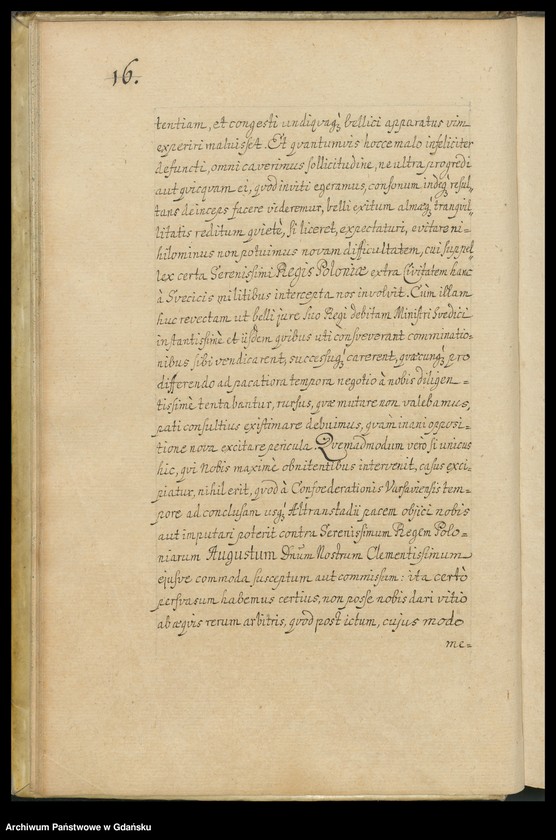 16.
tentiam, et congesti undiqvaqꝫ bellici apparatus vim
experiri maluisset. Et qvantumvis hocce malo infeliciter
defuncti, omni caverimus sollicitudine, ne ultra progredi
aut qvicqvam ei, qvod inviti egeramus, consonum indeqꝫ resul„
tans deinceps facere videremur, belli exitum almaeqꝫ tranqvil„
litatis reditum qvietè, si liceret, expectaturi, evitare ni=
hilominus non potuimus novam difficultatem, cui suppel„
lex certa Serenissimi Regis Poloniae extra Civitatem hanc
à Svecicis militibus intercepta nos involvit. Cùm illam
huc revectam ut belli jure suo Regi debitam Ministri Svedici
instantissimè et iisdem qvibus uti consveverant comminatio=
nibus sibi vendicarent, successuqꝫ carerent, qvaecunqꝫ pro
differendo ad pacatiora tempora negotio à nobis diligen=
tissimè tentabantur, rursus, qvae mutare non valebamus,
pati consultius existimare debuimus, qvàm inani opposi=
tione nova excitare pericula. Qvemadmodum vero si unicus
hic, qvi Nobis maximè obnitentibus intervenit, casus exci=
piatur, nihil erit, qvod à Confoederationis Varsaviensis tem=
pore ad conclusam usqꝫ Altranstadii pacem objici nobis
aut imputari poterit contra Serenissimum Regem Polo=
niarum Augustum Dnūm Nostrum Clementissimum
ejusve commoda susceptum aut commissum: ita certò
persvasum habemus certius, non posse nobis dari vitio
ab aeqvis rerum arbitris, qvod post ictum, cujus modo
me=
Archiwum Państwowe w Gdańsku